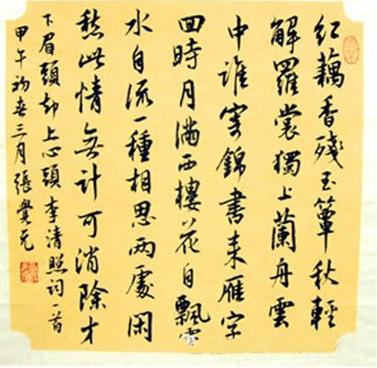 紅藕香殘玉簟秋輕
解羅裳獨上蘭舟雲
中誰寄錦書来雁字
回時月滿西樓花自飄零
水自流一種相思兩處閑
愁此情無計可消除才
下眉頭却上心頭李清照詞一首
甲午初春三月張